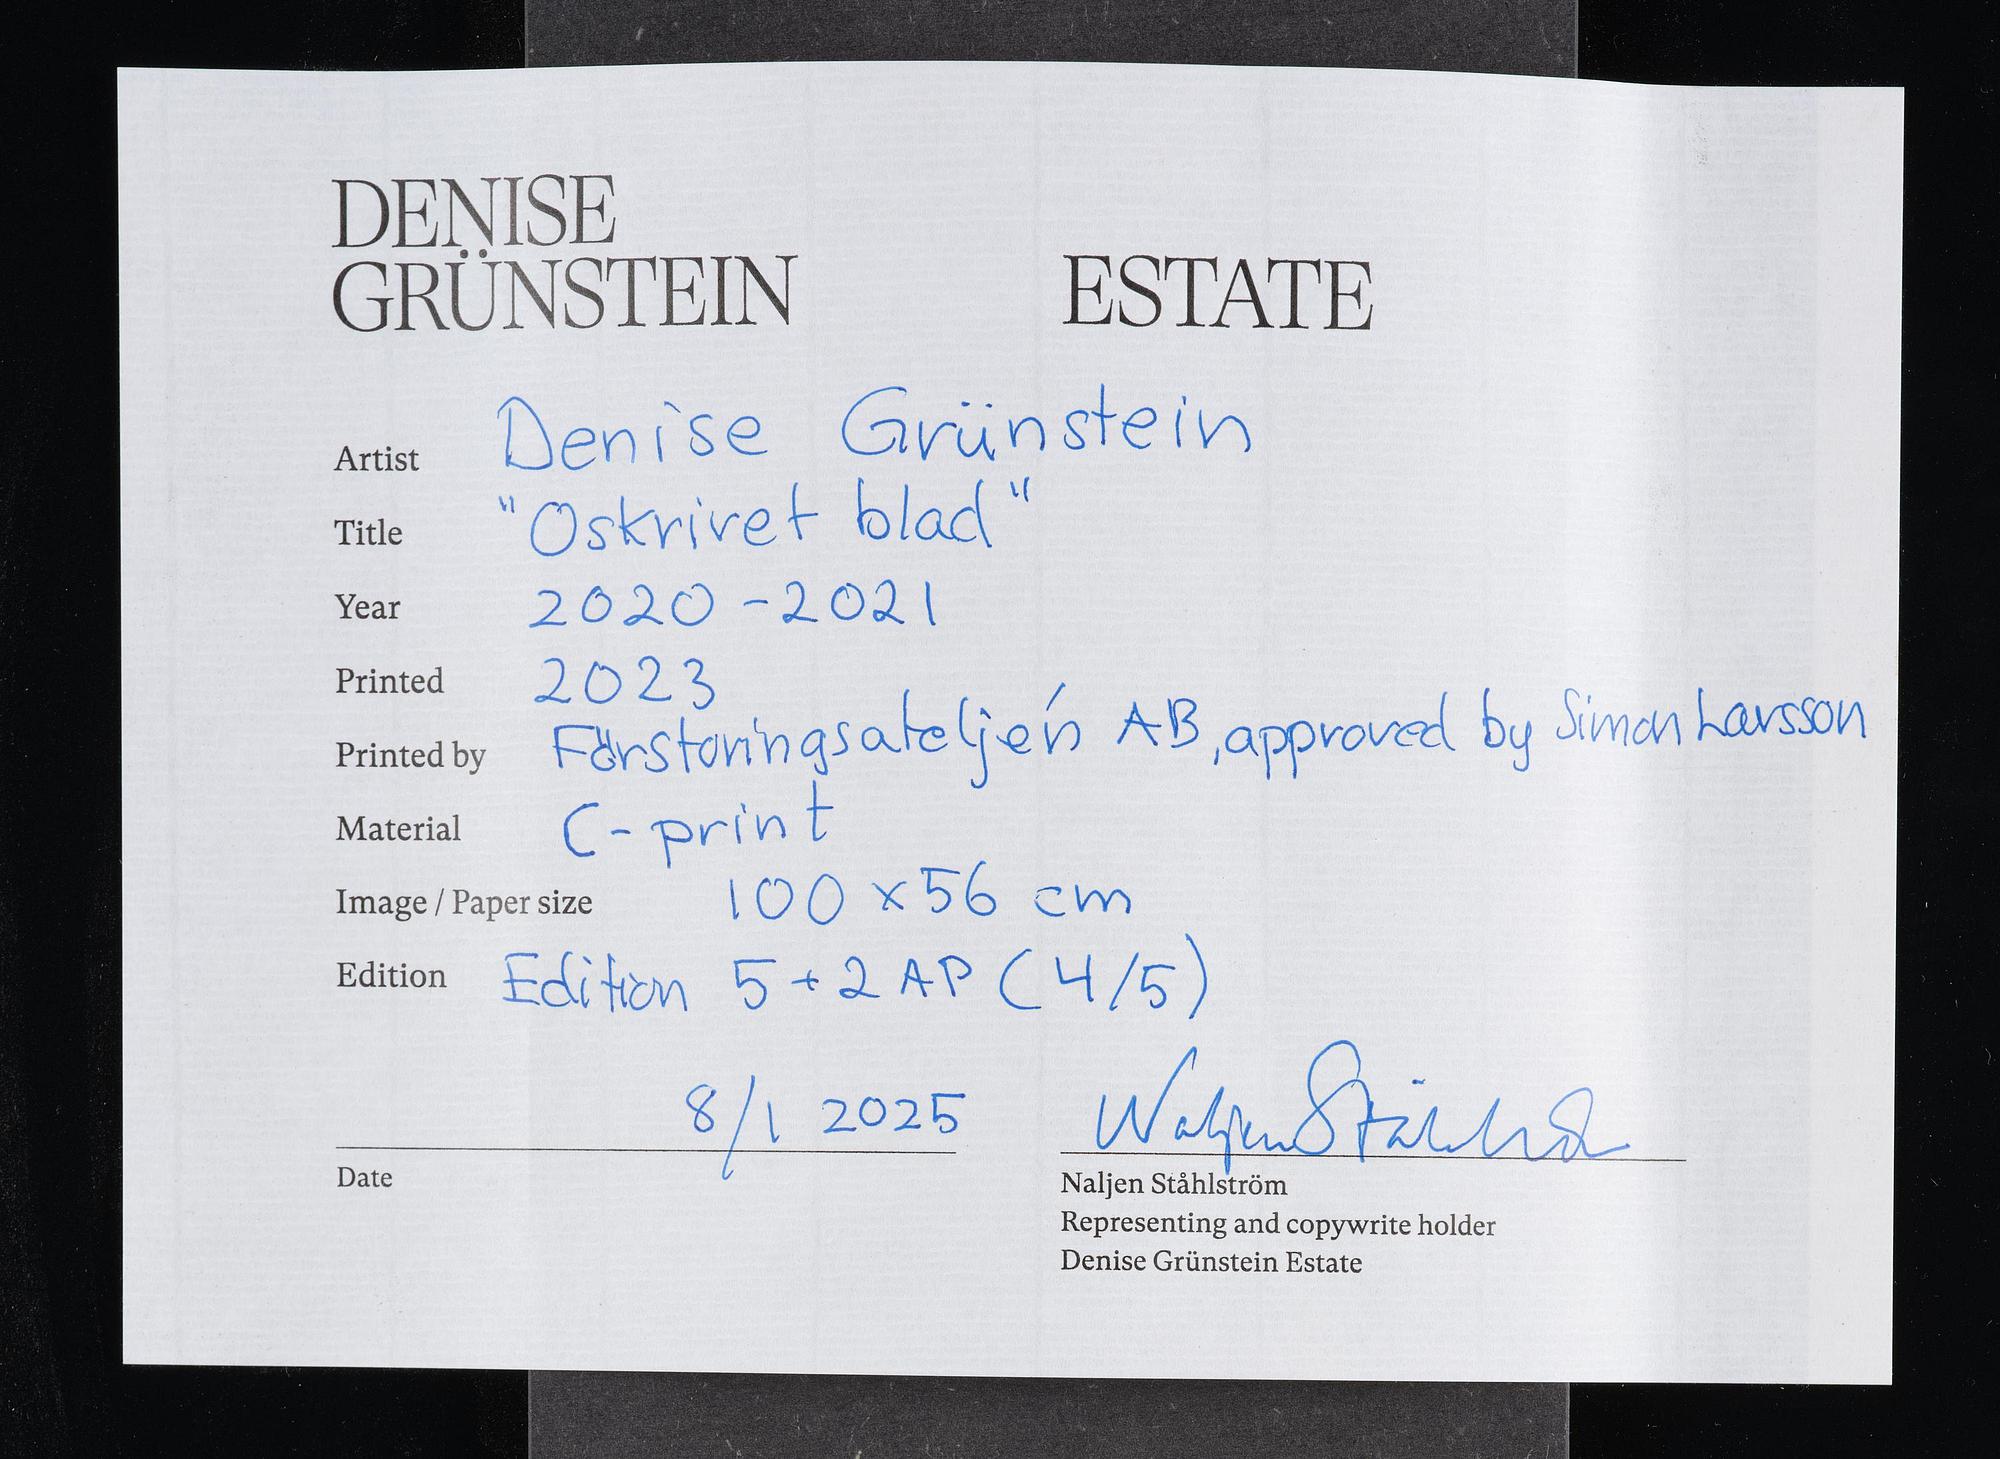 DENISE
GRÜNSTEIN ESTATE
Artist Denise Grünstein
Title "Oskrivet blad"
Year 2020-2021
Printed 2023
Printed by Förstoringsateljén AB, approved by Simon Larsson
Material C-print
Image / Paper size 100 x 56 cm
Edition Edition 5 + 2 AP (4/5)
8/1 2025
Date
Naljen Ståhlström
Representing and copywrite holder
Denise Grünstein Estate